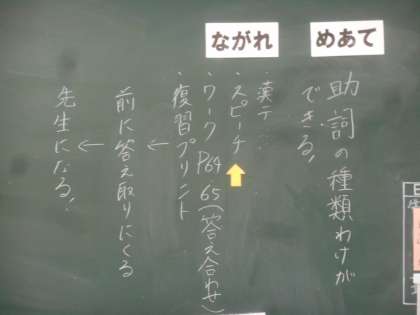 めあて
助詞の種類わけが
できる！
ながれ
・漢テ
・スピーチ
・ワーク P64 65(答え合わせ)
・復習プリント
←
前に答え取りにくる
←
先生になる！